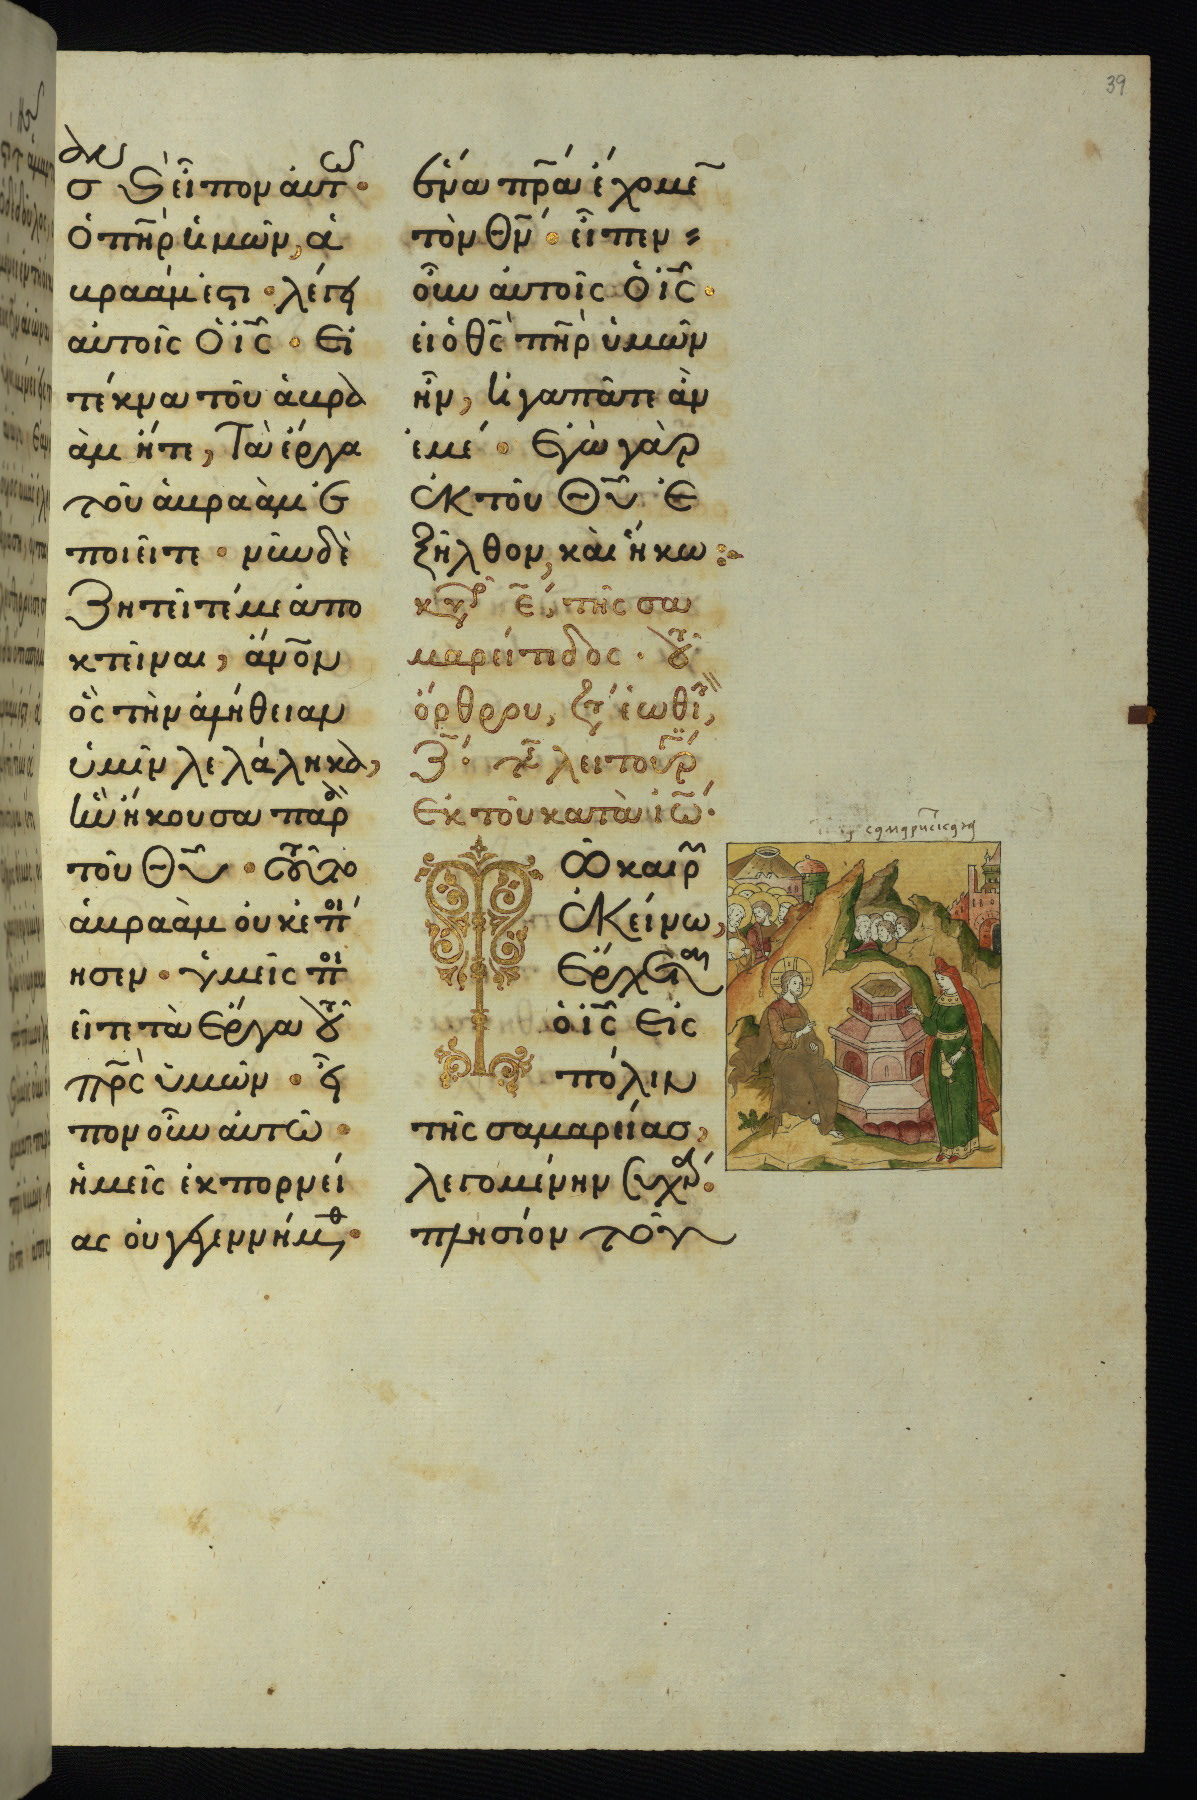 39
σ ϗ εἶπον αὐτῶ·
Ὁ πη̃ρ ἡμῶν, ἀ
βραάμ ἐστι · λέγει
αὐτοῖς Ὁ ἰς̃ · Εἰ
τέκνα τοῦ ἀβρα
ὰμ ἦτε, Τὰ ἔργα
τοῦ ἀβραὰμ ἐ
ποιεῖτε · νῦν δὲ
Ζητεῖτέ με ἀπο
κτεῖναι, ἄν̃ον
ὃς τὴν ἀλήθειαν
ὑμῖν λελάληκα,
ἣν ἤκουσα παρὰ
τοῦ Θῦ · τοῦτο
ἀβραὰμ οὐκ ἐποί
ησεν · ὑμεῖς ποι
εῖτε τὰ Ἔργα τοῦ
πρ̃ς ὑμῶν · εἶ
πον οὖν αὐτῶ ·
ἡμεῖς ἐκ πορνεί
ας οὐ γεγεννήμεθ,·
ἕνα πρ̃α ἔχομε̃
τὸν Θν̃ · εἶπεν
οὖν αὐτοῖς Ὁ ἰς̃ ·
εἰ ὁ θς̃ πη̃ρ ὑμῶν
ἦν, ἠγαπᾶτε ἂν
ἐμέ · Ἐγὼ γὰρ
ἐκ τοῦ Θῦ Ἐ
ξῆλθον, καὶ ἥκω
κυρ ε̃, τῆς σα
μαρείτιδος · τοῦ
ὄρθρου,
λειτουρ
Ἐκ τοῦ κατὰ ἰω̃·
Τῶ καιρ
Ἐκείνω,
Ἔρχεται
ὁ ἰς̃ Εἰς
πόλιν
τῆς σαμαρείας,
λεγομένην Συχάρ·
πλησίον τοῦ